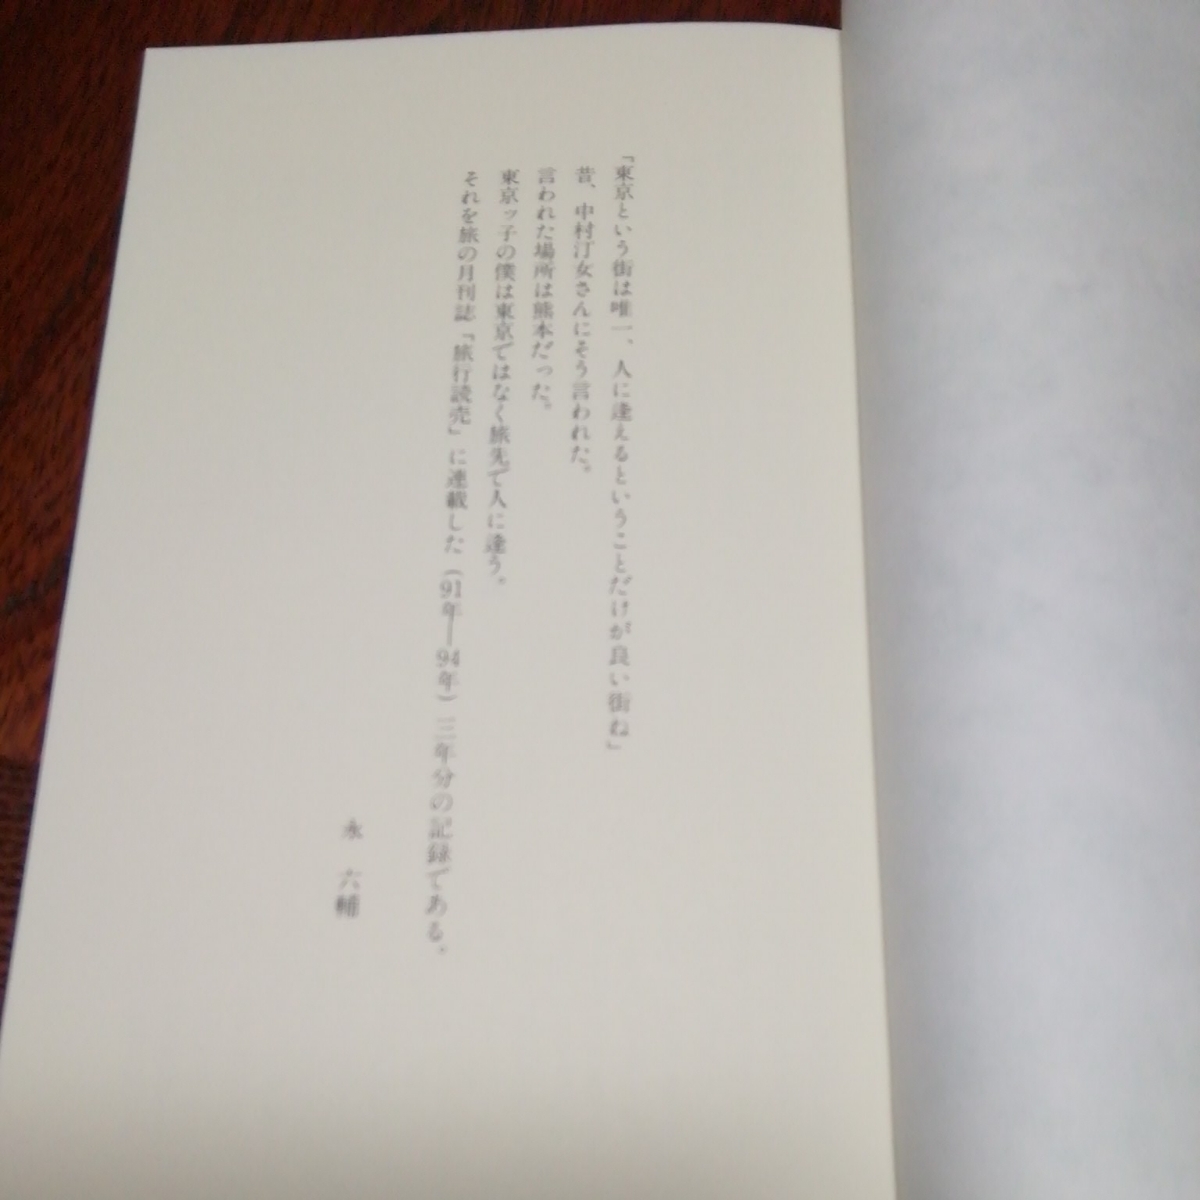 「東京という街は唯一、人に逢えるということだけが良い街ね」
昔、中村汀女さんにそう言われた。
言われた場所は熊本だった。
東京ッ子の僕は東京ではなく旅先で人に逢う。
それを旅の月刊誌「旅行読売」に連載した（91年―94年）三年分の記録である。
永 六輔